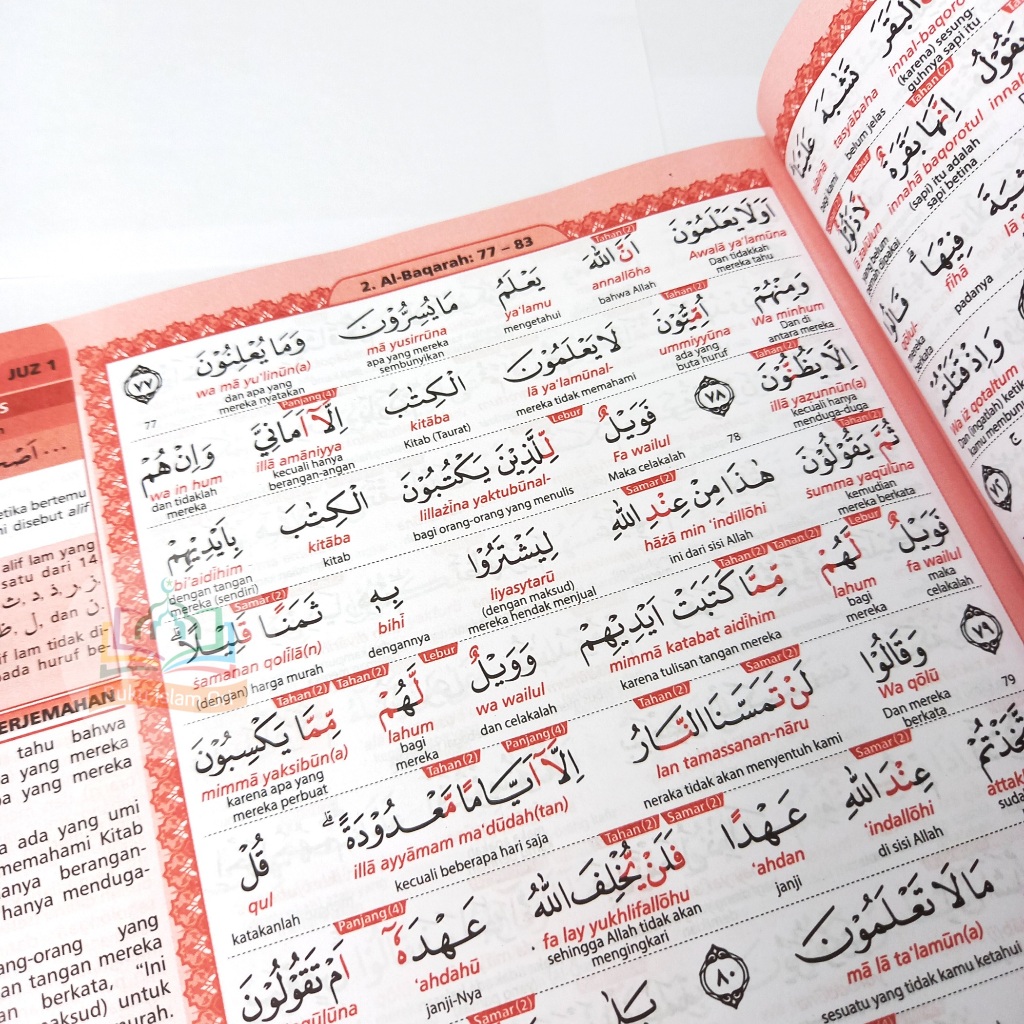 2. Al-Baqarah: 77 – 83
Tahan(2)
اَوَلَا يَعْلَمُوْنَ اَنَّ اللّٰهَ يَعْلَمُ مَا يُسِرُّوْنَ وَمَا يُعْلِنُوْنَ ٧٧
Awalā ya'lamūna annallōha ya'lamu mā yusirrūna wa mā yu'linūn(a)
Dan tidakkah mereka tahu bahwa Allah mengetahui apa yang mereka sembunyikan dan apa yang mereka nyatakan 77
Tahan(2) Panjang(4)
وَمِنْهُمْ اُمِّيُّوْنَ لَا يَعْلَمُوْنَ الْكِتٰبَ اِلَّآ اَمَانِيَّ وَاِنْ هُمْ
Wa minhum ummiyyūna lā ya'lamūnal- kitāba illā amāniyya wa in hum
Dan di antara mereka ada yang buta huruf mereka tidak memahami Kitab (Taurat) kecuali hanya berangan-angan dan tidaklah mereka
Tahan(2) Lebur
اِلَّا يَظُنُّوْنَ ٧٨ فَوَيْلٌ لِّلَّذِيْنَ يَكْتُبُوْنَ الْكِتٰبَ بِاَيْدِيْهِمْ
illā yazunnūn(a) Fa wailul lillażīna yaktubūnal- kitāba bi'aidīhim
kecuali hanya menduga-duga 78 Maka celakalah bagi orang-orang yang menulis kitab dengan tangan mereka (sendiri)
Tahan(2) Samar(2) Samar(2)
ثُمَّ يَقُوْلُوْنَ هٰذَا مِنْ عِنْدِ اللّٰهِ لِيَشْتَرُوْا بِهٖ ثَمَنًا قَلِيْلًاۗ
ṡumma yaqūlūna hāżā min 'indillōhi liyasytarū bihī ṡamanan qolīlā(n)
kemudian mereka berkata ini dari sisi Allah (dengan maksud) mereka hendak menjual dengannya (dengan) harga murah
Lebur Tahan(2) Tahan(2) Lebur Tahan(2) Tahan(2)
فَوَيْلٌ لَّهُمْ مِّمَّا كَتَبَتْ اَيْدِيْهِمْ وَوَيْلٌ لَّهُمْ مِّمَّا يَكْسِبُوْنَ
fa wailul lahum mimmā katabat aidīhim wa wailul lahum mimmā yaksibūn(a)
maka celakalah bagi mereka karena tulisan tangan mereka dan celakalah bagi mereka karena apa yang mereka perbuat
Samar(2) Tahan(2) Panjang(4) Tahan(2)
٧٩ وَقَالُوْا لَنْ تَمَسَّنَا النَّارُ اِلَّآ اَيَّامًا مَّعْدُوْدَةًۗ قُلْ
Wa qōlū lan tamassanan-nāru illā ayyāmam ma'dūdah(tan) qul
79 Dan mereka berkata neraka tidak akan menyentuh kami kecuali beberapa hari saja katakanlah
Samar(2) Samar(2) Tahan(2) Panjang(4)
عِنْدَ اللّٰهِ عَهْدًا فَلَنْ يُّخْلِفَ اللّٰهُ عَهْدَهٗٓ اَمْ تَقُوْلُوْنَ
'indallōhi 'ahdan fa lay yukhlifallōhu 'ahdahū
di sisi Allah janji sehingga Allah tidak akan mengingkari janji-Nya
Samar(2)
مَا لَا تَعْلَمُوْنَ ٨٠
mā lā ta'lamūn(a)
sesuatu yang tidak kamu ketahui
JUZ 1
etika bertemu
disebut alif
alif lam yang
satu dari 14
dan ن
lam tidak di-
pada huruf be-
ERJEMAHAN
tahu bahwa
yang mereka
yang mereka
ada yang umi
memahami Kitab
hanya berangan-
hanya menduga-
yang
tangan mereka
berkata, "Ini
untuk
تَشٰبَهَ
tasyābaha innal-baqoro
belum jelas (karena) sesung-guhnya sapi itu
Tahan(2)
اِنَّهَا بَقَرَةٌ لَّا ذَلُوْلٌ
Lebur
innahā baqorotul
(sapi) itu adalah sapi betina
فِيْهَا
fīhā
padanya
wa iż qotaltum
(ingatlah) ketika kamu membunuh
٧٢